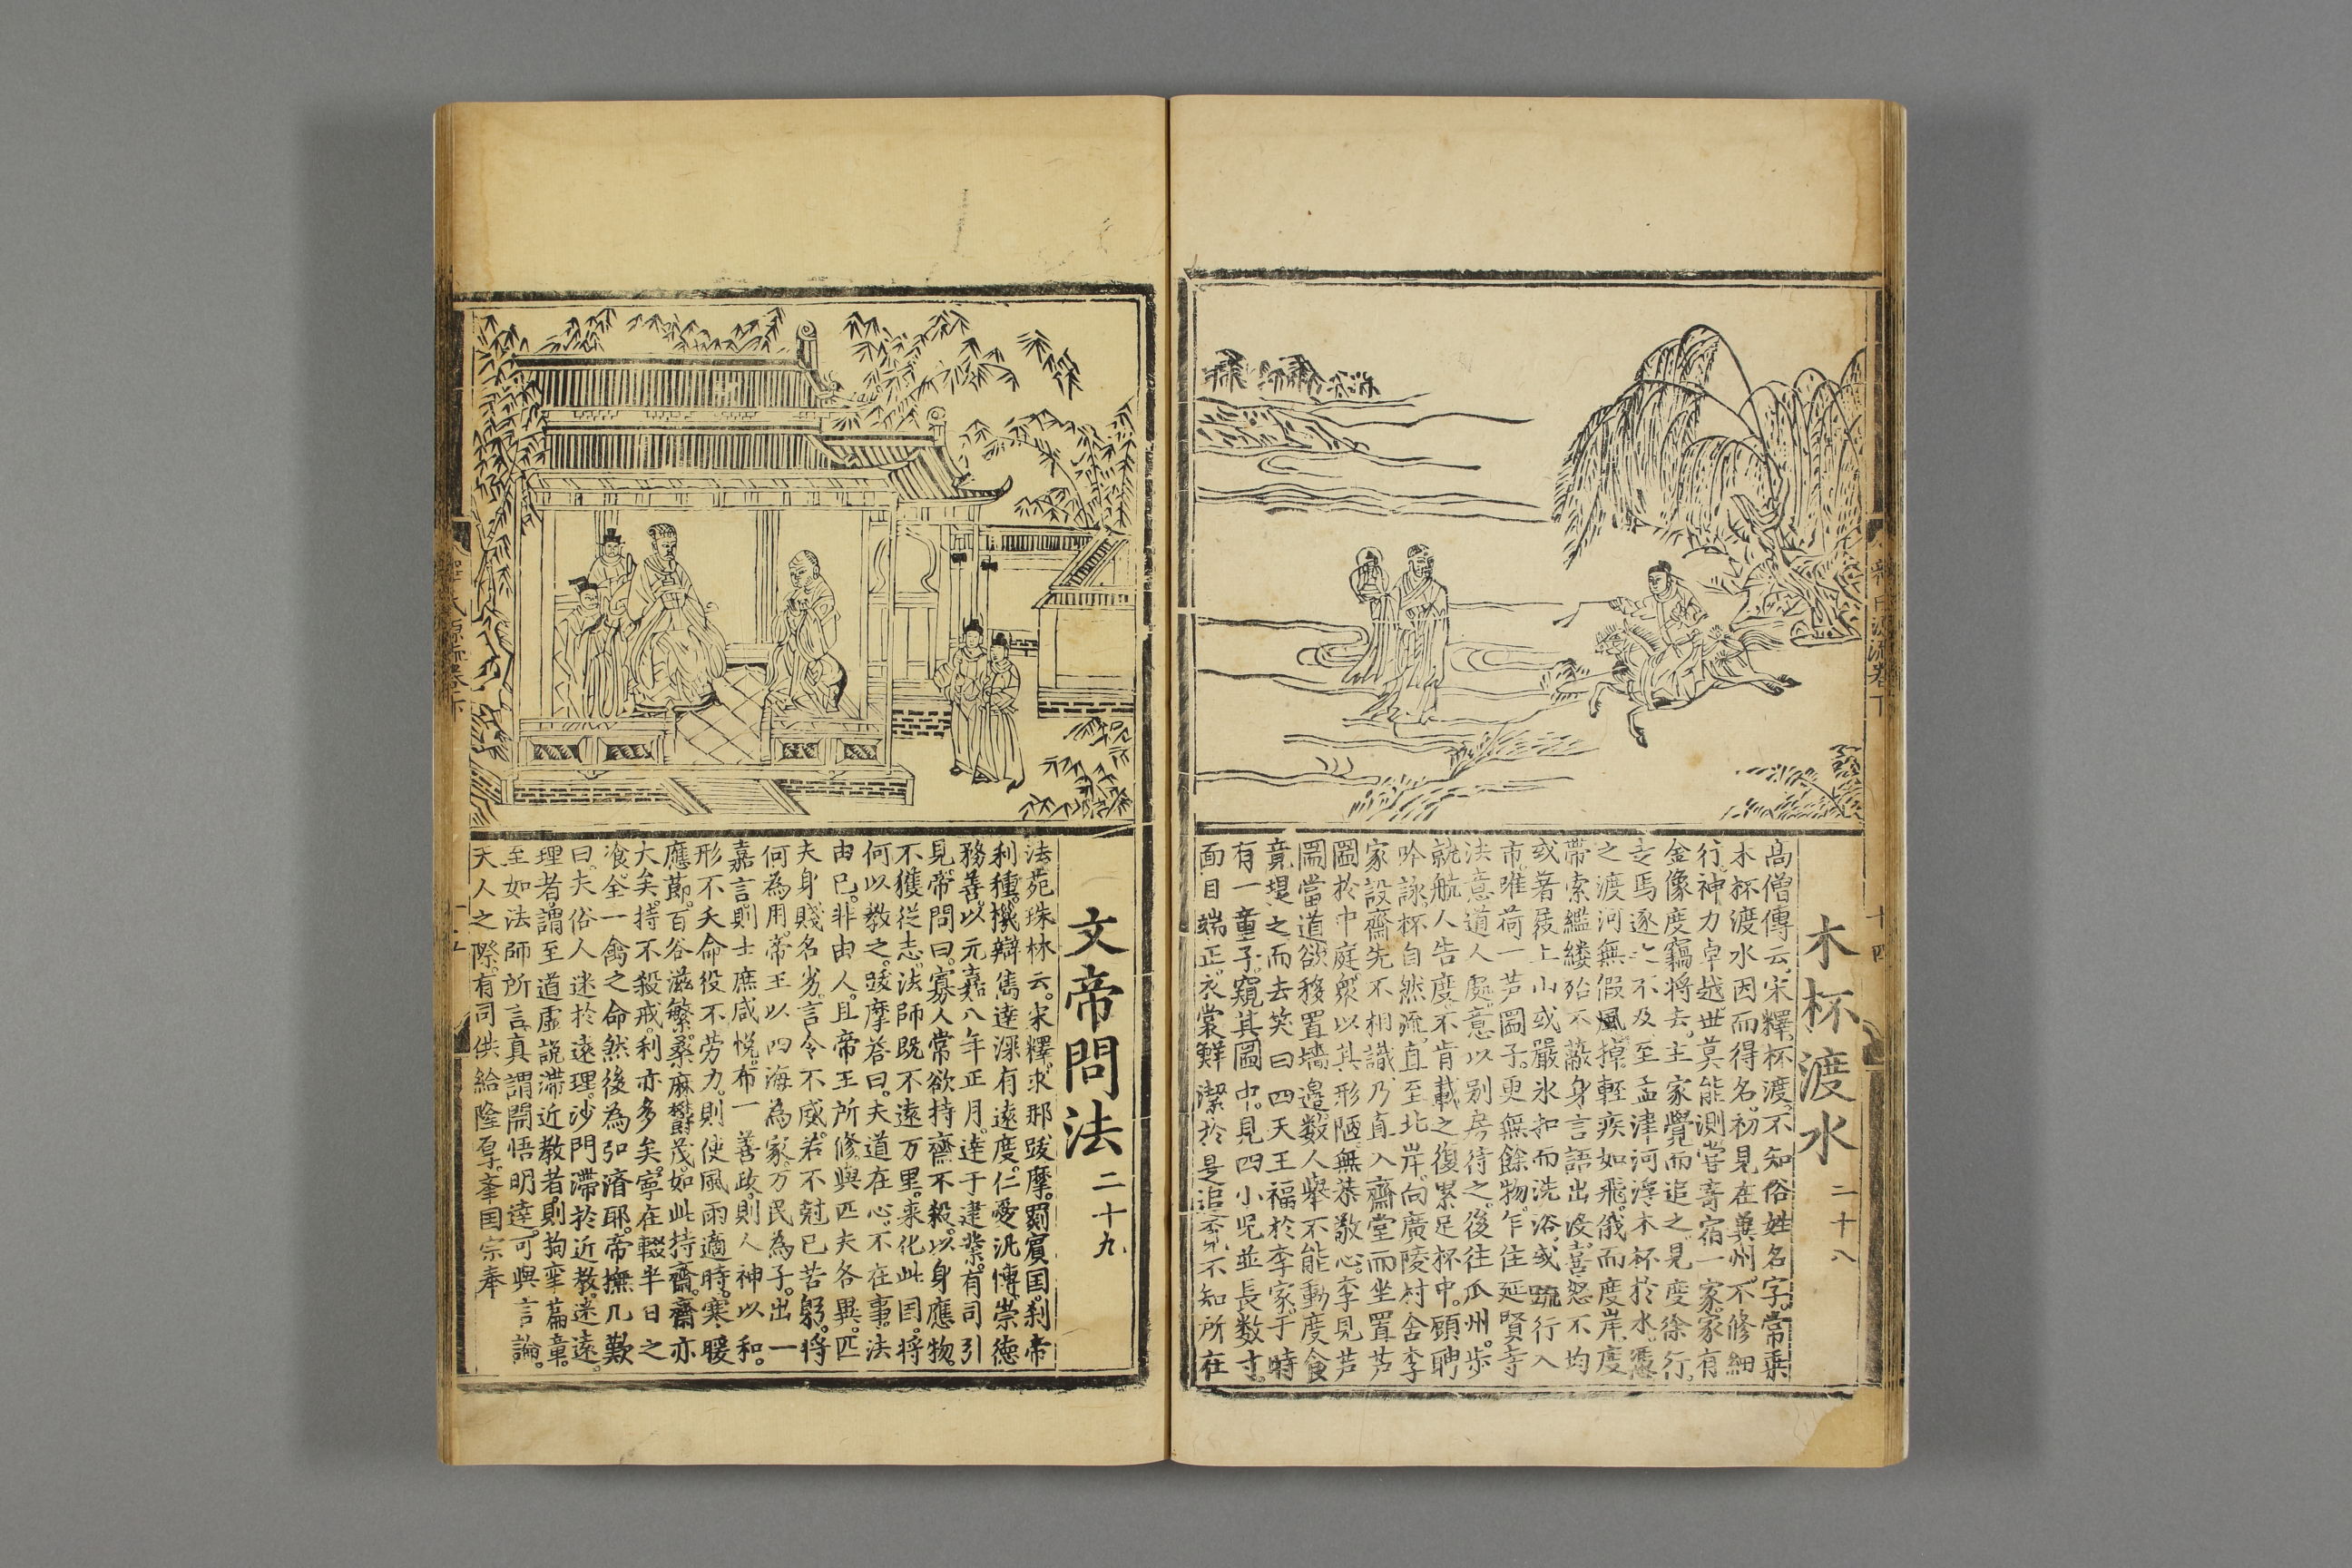 木杯渡水 二十八
高僧傳云宋釋杯渡不知俗姓名字常乗
木杯渡水因而得名初見在兾州不修細
行神力卓越世莫能測甞寄宿一家家有
金像度竊將去主家覺而追之見度徐行
走馬逐之不及至孟津河浮木杯於水憑
之渡河無假風掉輕疾如飛俄而度岸度
帶索繿縷殆不蔽身言語出沒喜怒不均
或著屐上山或嚴氷扣而洗浴或跣行入
市唯荷一芦圌子更無餘物乍住延賢寺
法意道人處意以别房待之後往瓜州步
就航人告度不肯載之復累足杯中顧眄
吟詠杯自然流直至北岸向廣陵村舍李
家設齋先不相識乃直入齋堂而坐置芦
圌於中庭衆以其形陋無恭敬心李見芦
圌當道欲移置墻邉数人舉不能動度食
竟提之而去笑曰四天王福於李家于時
有一童子窺其圌中見四小兒並長数寸
面目端正衣裳鮮潔於是追覔不知所在
釋氏源流卷下
十四
文帝問法 二十九
法苑珠林云宋釋求那跋摩罽賓国刹帝
利種機辯雋達深有遠度仁愛汎博崇德
務善以元嘉八年正月達于建業有司引
見帝問曰寡人常欲持齋不殺以身應物
不獲從志法師既不遠万里来化此国將
何以教之跋摩荅曰夫道在心不在事法
由已非由人且帝王所修與匹夫各異匹
夫身賤名劣言令不威若不尅已苦躬將
何為用帝王以四海為家万民為子出一
嘉言則士庶咸悦布一善政則人神以和
形不夭命役不劳力則使風雨適時寒暖
應節百谷滋繁桑麻欝茂如此持齋齋亦
大矣持不殺戒利亦多矣寧在輟半日之
飡全一禽之命然後為弘濟耶帝撫几歎
曰夫俗人迷於遠理沙門滯於近教迷遠
理者謂至道虛說滯近教者則拘孿篇章
至如法師所言真謂開悟明達可與言論
天人之際有司供給隆厚峯国宗奉